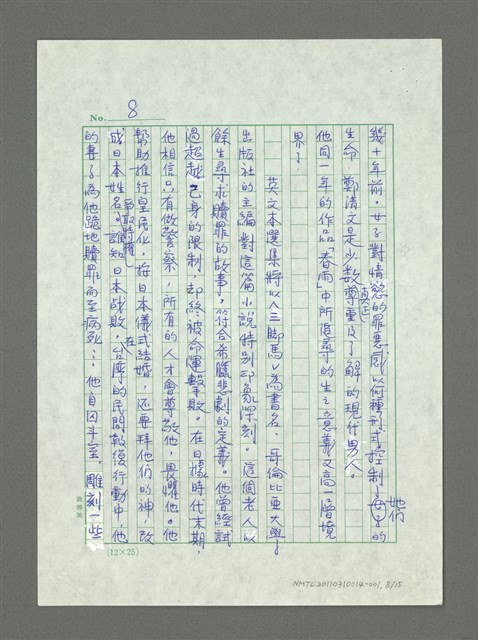 No. 8
幾十年前。女子對情慾的罪惡感以何種形式控制了她們的
生命 鄭清文是少数真正尊重及了解的現代男人。
他同一年的作品「春雨」中所追尋的生之意義又高一層境
界了。
英文本選集將以〈三脚馬〉為書名．哥倫比亞大學
出版社的主編對這篇小說特別印象深刻。這個老人以
餘生尋求贖罪的故事，符合希臘悲劇的定義。他曾經試
過超越己身的限制 却終被命運擊敗。在日據時代末期，
他相信只有做警察，所有的人才會尊敬他，畏懼他。他
幫助推行皇民化，在日本儀式結婚，还要拜他们的神，改
成日本姓名。爭取特權 誰知日本战敗，在台灣的民間報復行動中，他
的妻子為他跪地贖罪而至病死…他自囚斗室，雕刻一些
(12×25)
NMTL20110310014-001, 8/15